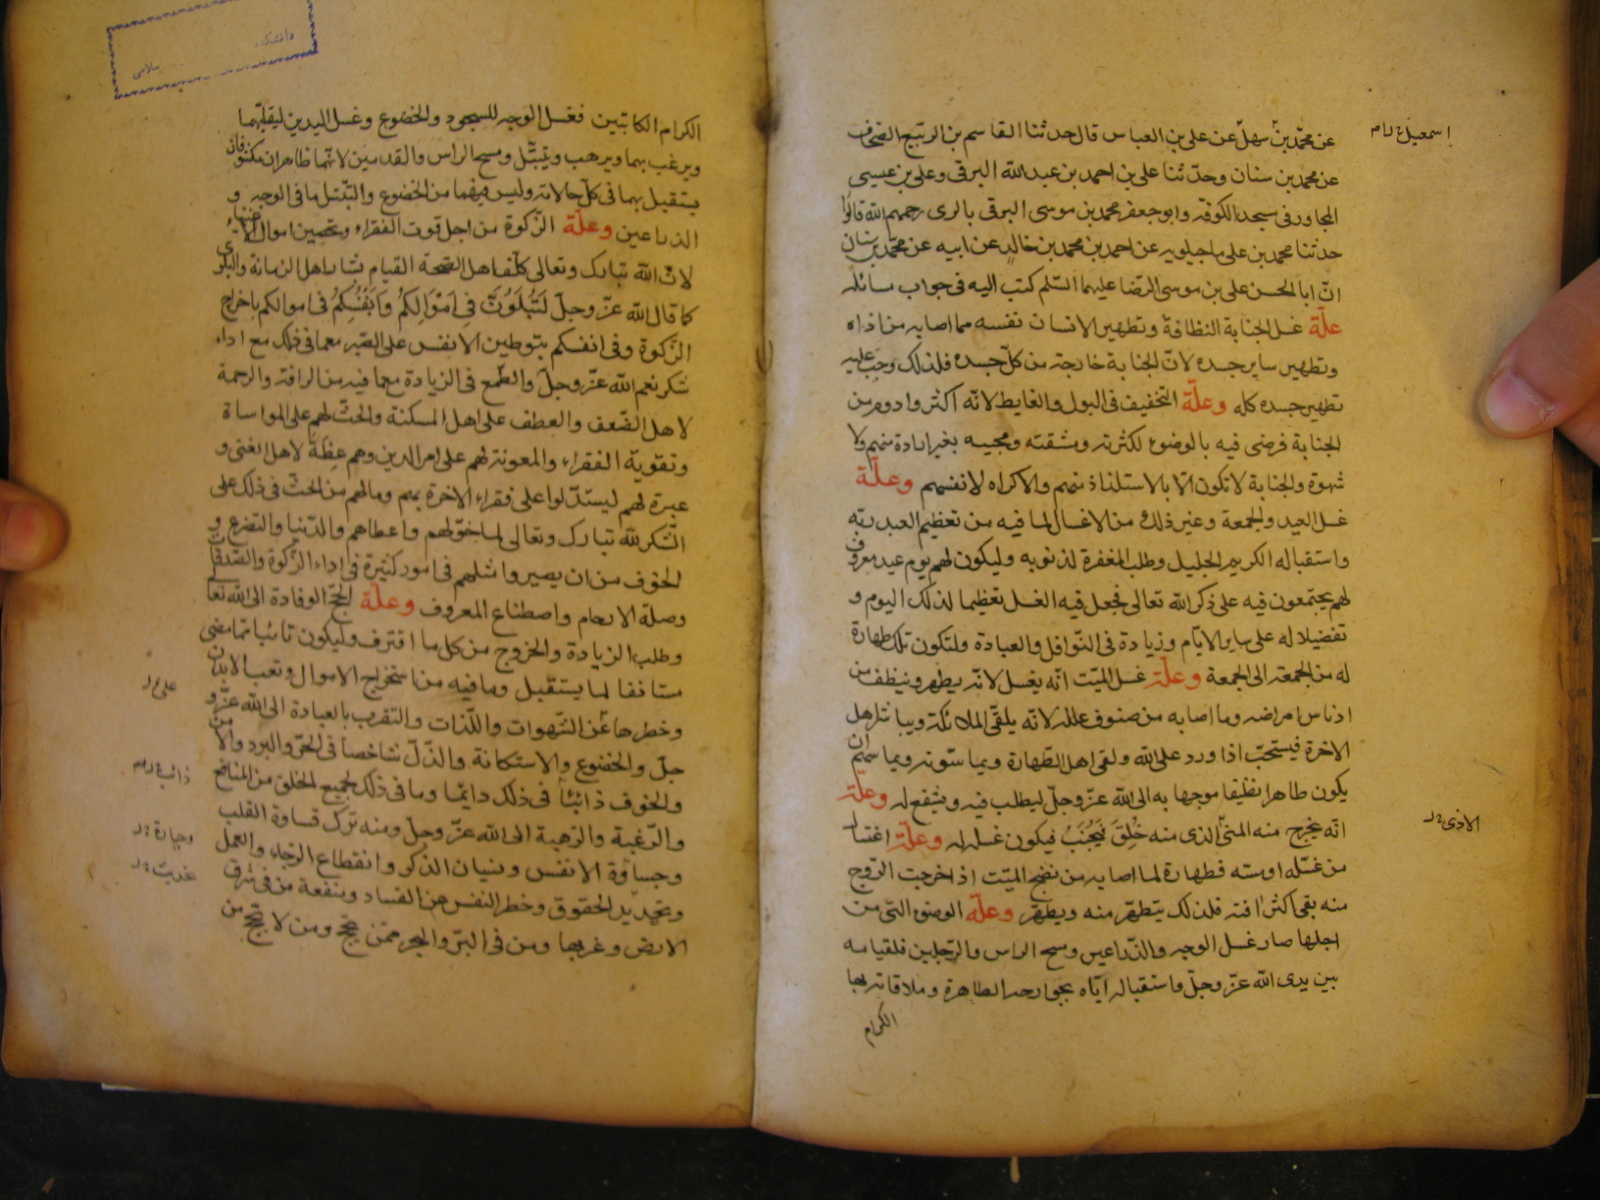 عن محمد بن سهل عن علي بن العباس قال حدثنا القاسم بن الربيع الصحاف
اسمعيل
عن محمد بن سنان وحدثنا علي بن احمد بن عبدالله البرقي وعلي بن عيسى
المجاور في مسجد الكوفة وابو جعفر محمد بن موسى البرقي بالري رحمهم الله قالوا
حدثنا محمد بن علي ماجيلويه عن احمد بن محمد بن خالد عن ابيه عن محمد بن سنان
ان ابا الحسن علي بن موسى الرضا عليهما السلم كتب اليه في جواب مسائله
علة غسل الجنابة النظافة وتطهير الانسان نفسه مما اصابه من اذاه
وتطهير ساير جسده لان الجنابة خارجة من كل جسده فلذلك وجب عليه
تطهير جسده كله وعلة التخفيف في البول والغايط لانه اكثر وادوم من
الجنابة فرضى فيه بالوضوء لكثرته ومشقته ومجيئه بغير ارادة منهم ولا
شهوة والجنابة لا تكون الا بالاستلذاذ منهم والاكراه لانفسهم وعلة
غسل العيد والجمعة وغير ذلك من الاغسال لما فيه من تعظيم العبد ربه
واستقباله الكريم الجليل وطلب المغفرة لذنوبه وليكون لهم يوم عيد معروف
لهم يجتمعون فيه على ذكر الله تعالى فجعل فيه الغسل تعظيما لذلك اليوم و
تفضيلا له على ساير الايام وزيادة في النوافل والعبادة ولتكون تلك طهارة
له من الجمعة الى الجمعة وعلة غسل الميت انه يغسل لانه يطهر وينظف من
ادناس امراضه وما اصابه من صنوف علله لانه يلقى الملائكة ويباشر اهل
الاخرة فيستحب اذا ورد على الله ولقى اهل الطهارة ويماسونه ويماسهم ان
يكون طاهرا نظيفا موجها به الى الله عز وجل ليطلب فيه ويشفع له وعلة
انه يخرج منه المني الذي منه خلق فيجنب فيكون غسله له وعلة اغتسال
الاذى
من غسله او مسه فطهارة لما اصابه من نضح الميت اذا خرجت الروح
منه بقى اكثر افته فلذلك يتطهر منه ويطهر وعلة الوضوء التي من
اجلها صار غسل الوجه والذراعين ومسح الراس والرجلين فلقيامه
بين يدى الله عز وجل واستقباله اياه بجوارحه الطاهرة وملاقاته بها
الكرام
الكرام الكاتبين فغسل الوجه للسجود والخضوع وغسل اليدين ليقلبهما
ويرغب بهما ويرهب ويتبتل ومسح الراس والقدمين لانهما ظاهران مكشوفان
يستقبل بهما في كل حالاته وليس فيهما من الخضوع والتبتل ما في الوجه و
الذراعين وعلة الزكوة من اجل قوت الفقراء وتحصين اموال الاغنياء
لان الله تبارك وتعالى كلف اهل الصحة القيام بشان اهل الزمانة والبلوى
كما قال الله عز وجل لتبلون في اموالكم وانفسكم في اموالكم باخراج
الزكوة وفي انفسكم بتوطين الانفس على الصبر مع ما في ذلك مع اداء
شكر نعم الله عز وجل والطمع في الزيادة مع ما فيه من الرافة والرحمة
لاهل الضعف والعطف على اهل المسكنة والحث لهم على المواساة
وتقوية الفقراء والمعونة لهم على امر الدين وهم عظة لاهل الغنى و
عبرة لهم ليستدلوا على فقراء الاخرة بهم وما لهم من الحث في ذلك على
الشكر لله تبارك وتعالى لما خولهم واعطاهم والدنيا والتضرع و
الخوف من ان يصيروا مثلهم في امور كثيرة في اداء الزكوة والصدقات
وصلة الارحام واصطناع المعروف وعلة الحج الوفادة الى الله تعا
وطلب الزيادة والخروج من كل ما اقترف وليكون تائبا مما مضى
مستانفا لما يستقبل وما فيه من استخراج الاموال وتعب الابدان
وخطرها عن الشهوات واللذات والتقرب بالعبادة الى الله عز و
جل والخضوع والاستكانة والذل شاخصا في الحر والبرد والامن
والخوف ذائبا في ذلك دائما وما في ذلك لجميع الخلق من المنافع
والرغبة والرهبة الى الله عز وجل ومنه ترك قساوة القلب
وجساوة الانفس ونسيان الذكر وانقطاع الرجاء والعمل
وتجديد الحقوق وخطر النفس عن الفساد ومنفعة من في شرق
الارض وغربها ومن في البر والبحر ممن يحج ومن لا يحج من